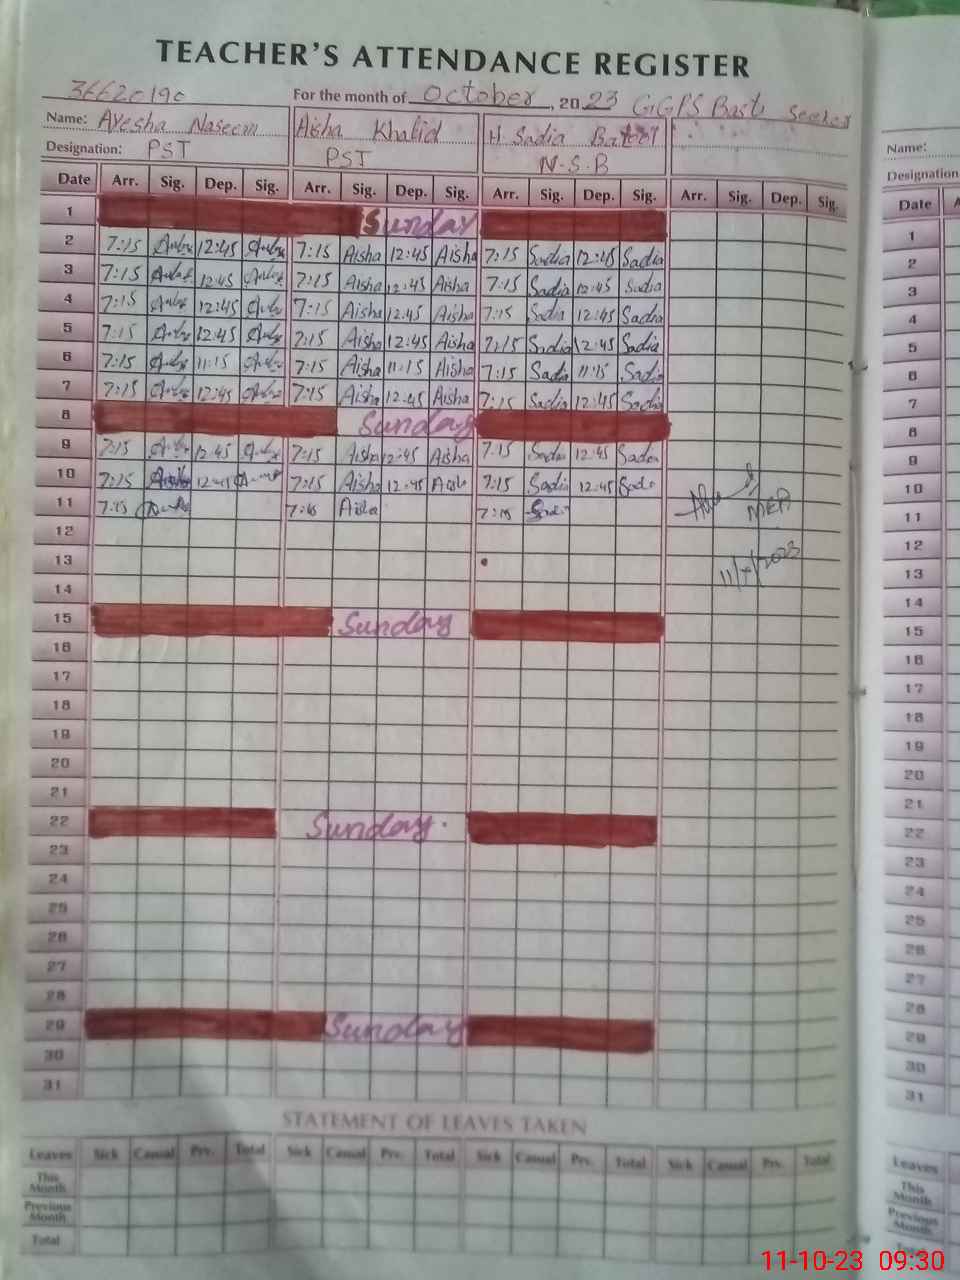 TEACHER'S ATTENDANCE REGISTER
36620190 For the month of October, 2023 GGPS Basti
Name: Ayesha Naseem Aisha Khalid H Sadia Batool Name:
Designation: PST PST N-S-B Designation
Date Arr. Sig. Dep. Sig. Arr. Sig. Dep. Sig. Arr. Sig. Dep. Sig. Arr. Sig. Dep. Sig. Date
1 Sunday 1
2 7:15 12:45 7:15 Aisha 12:45 Aisha 7:15 Sadia 12:45 Sadia 2
3 7:15 12:45 7:15 Aisha 12:45 Aisha 7:15 Sadia 12:45 Sadia 3
4 7:15 12:45 7:15 Aisha 12:45 Aisha 7:15 Sadia 12:45 Sadia 4
5 7:15 12:45 7:15 Aisha 12:45 Aisha 7:15 Sadia 12:45 Sadia 5
6 7:15 11:15 7:15 Aisha 11:15 Aisha 7:15 Sadia 11:15 Sadia 6
7 7:15 12:45 7:15 Aisha 12:45 Aisha 7:15 Sadia 12:45 Sadia 7
8 Sunday 8
9 7:15 12:45 7:15 Aisha 12:45 Aisha 7:15 Sadia 12:45 Sadia 9
10 7:15 12:45 7:15 Aisha 12:45 7:15 Sadia 12:45 10
11 7:15 7:15 7:15 MEA 11
12 12
13 11/10/2023 13
14 14
15 Sunday 15
16 16
17 17
18 18
19 19
20 20
21 21
22 Sunday. 22
23 23
24 24
25 25
26 26
27 27
28 28
29 Sunday 29
30 30
31 31
STATEMENT OF LEAVES TAKEN
Leaves Sick Casual Prv. Total Sick Casual Prv. Total Sick Casual Prv. Total Sick Casual Prv. Total Leaves
This Month This Month
Previous Month Previous Month
Total
11-10-23 09:30